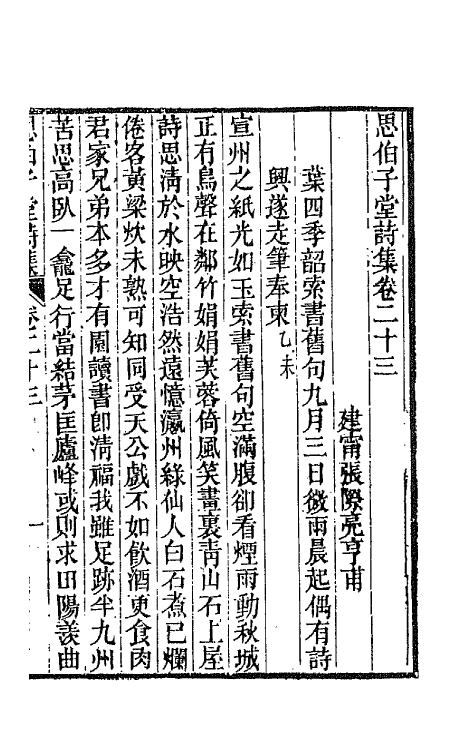 思伯子堂詩集卷二十三
建甯張際亮亨甫
葉四季韶索書舊句九月三日微雨晨起偶有詩
興遂走筆奉柬乙未
宣州之紙光如玉索書舊句空滿腹卻看煙雨動秋城
正有鳥聲在鄰竹娟娟芙蓉倚風笑畫裏靑山石上屋
詩思淸於水映空浩然遠憶瀛州綠仙人白石煮已爛
倦客黃粱炊未熟可知同受天公戲不如飮酒更食肉
君家兄弟本多才有園讀書卽淸福我雖足跡半九州
苦思高臥一龕足行當結茅匡廬峰或則求田陽羨曲
思伯子堂詩集
卷二十三
一